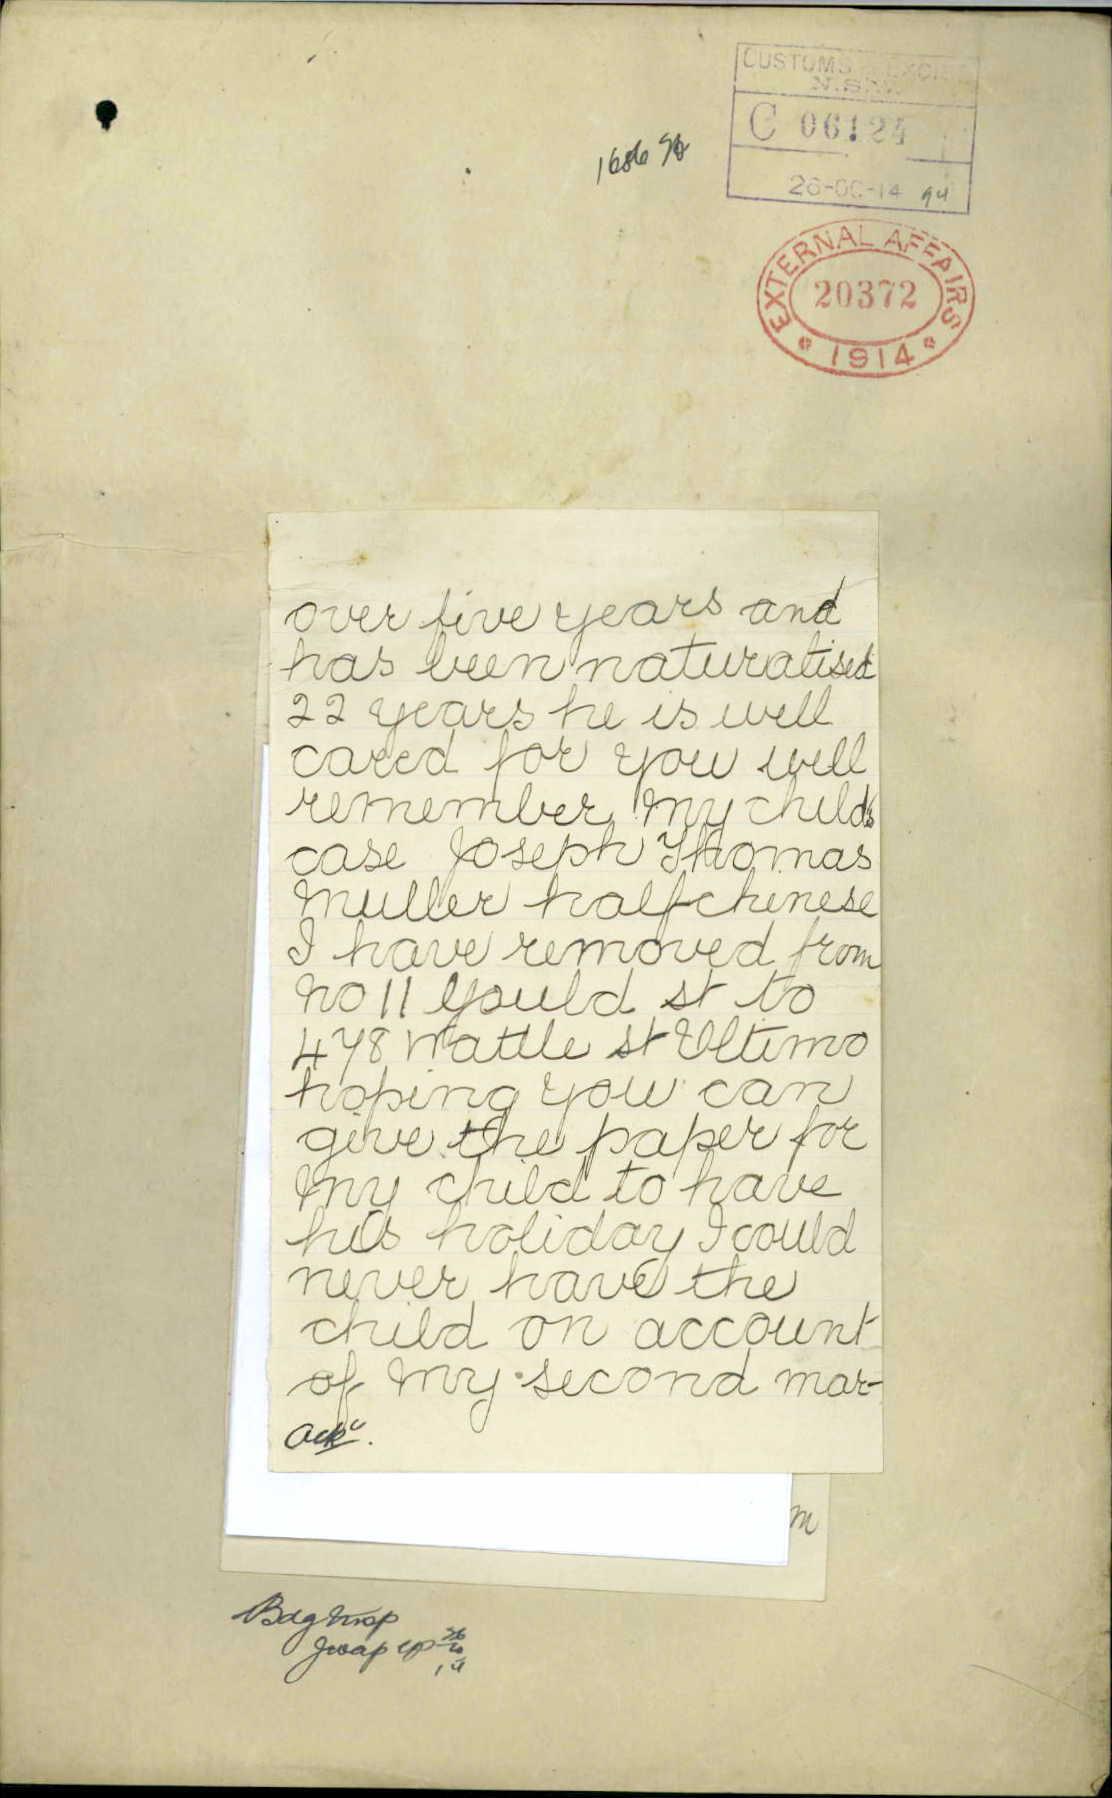 CUSTOMS & EXCISE
N.S.W.
C 06124
EXTERNAL AFFAIRS
20372
1914
over five years and
has been naturalised
22 years he is well
cared for you will
remember my child's
case Joseph Thomas
Muller halfchinese
I have removed from
No 11 Gould st to
478 Wattle st Ultimo
hoping you can
give the paper for
my child to have
his holiday I could
never have the
child on account
of my second mar-
Ackd.
m